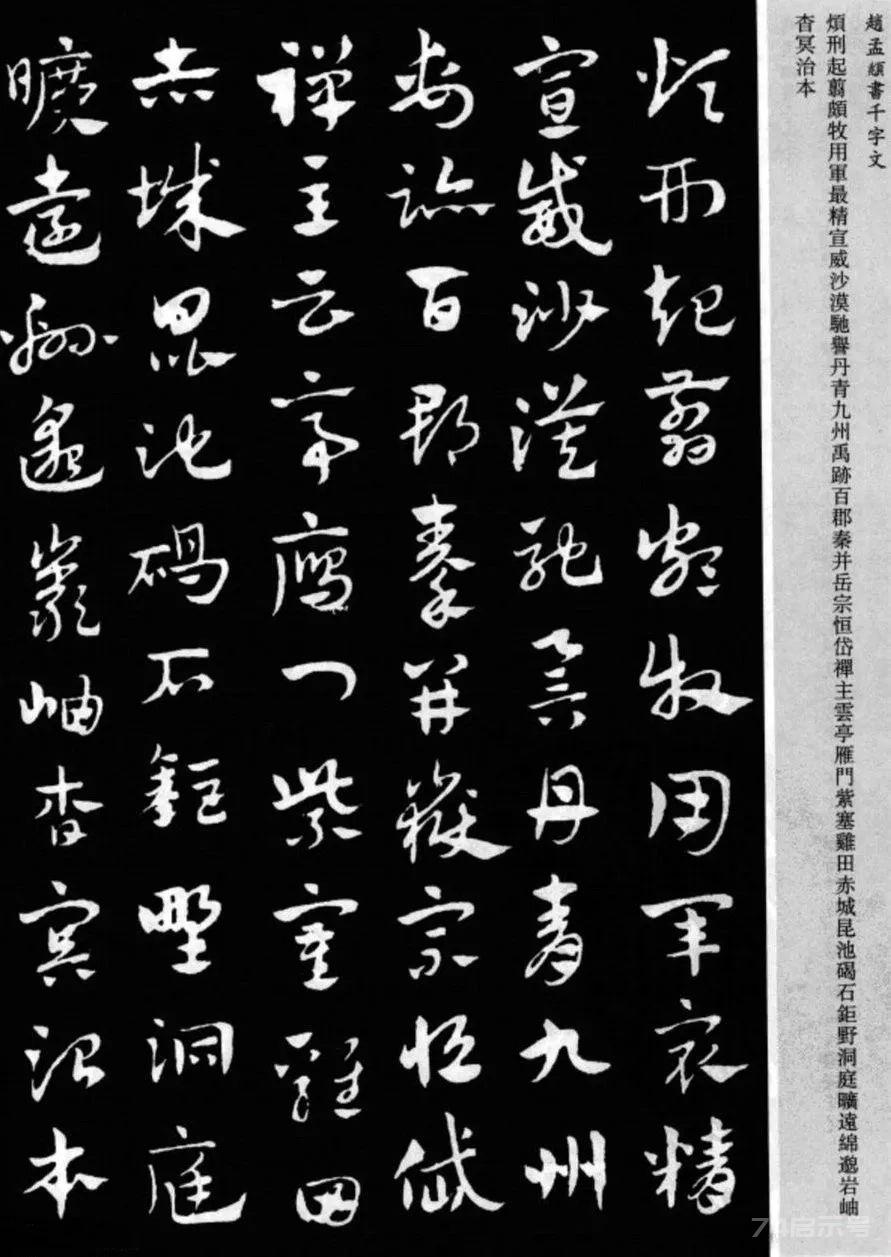 趙孟頫書千字文
煩刑起翦頗牧用軍最精宣威沙漠馳譽丹青九州禹跡百郡秦并岳宗恒岱禪主雲亭雁門紫塞雞田赤城昆池碣石鉅野洞庭曠遠綿邈岩岫
杳冥治本
煩刑起翦頗牧用軍最精
宣威沙漠馳譽丹青九州
禹跡百郡秦并嶽宗恒岱
禪主云亭雁門紫塞雞田
赤城昆池碣石鉅野洞庭
曠遠綿邈巖岫杳冥治本
74启示号